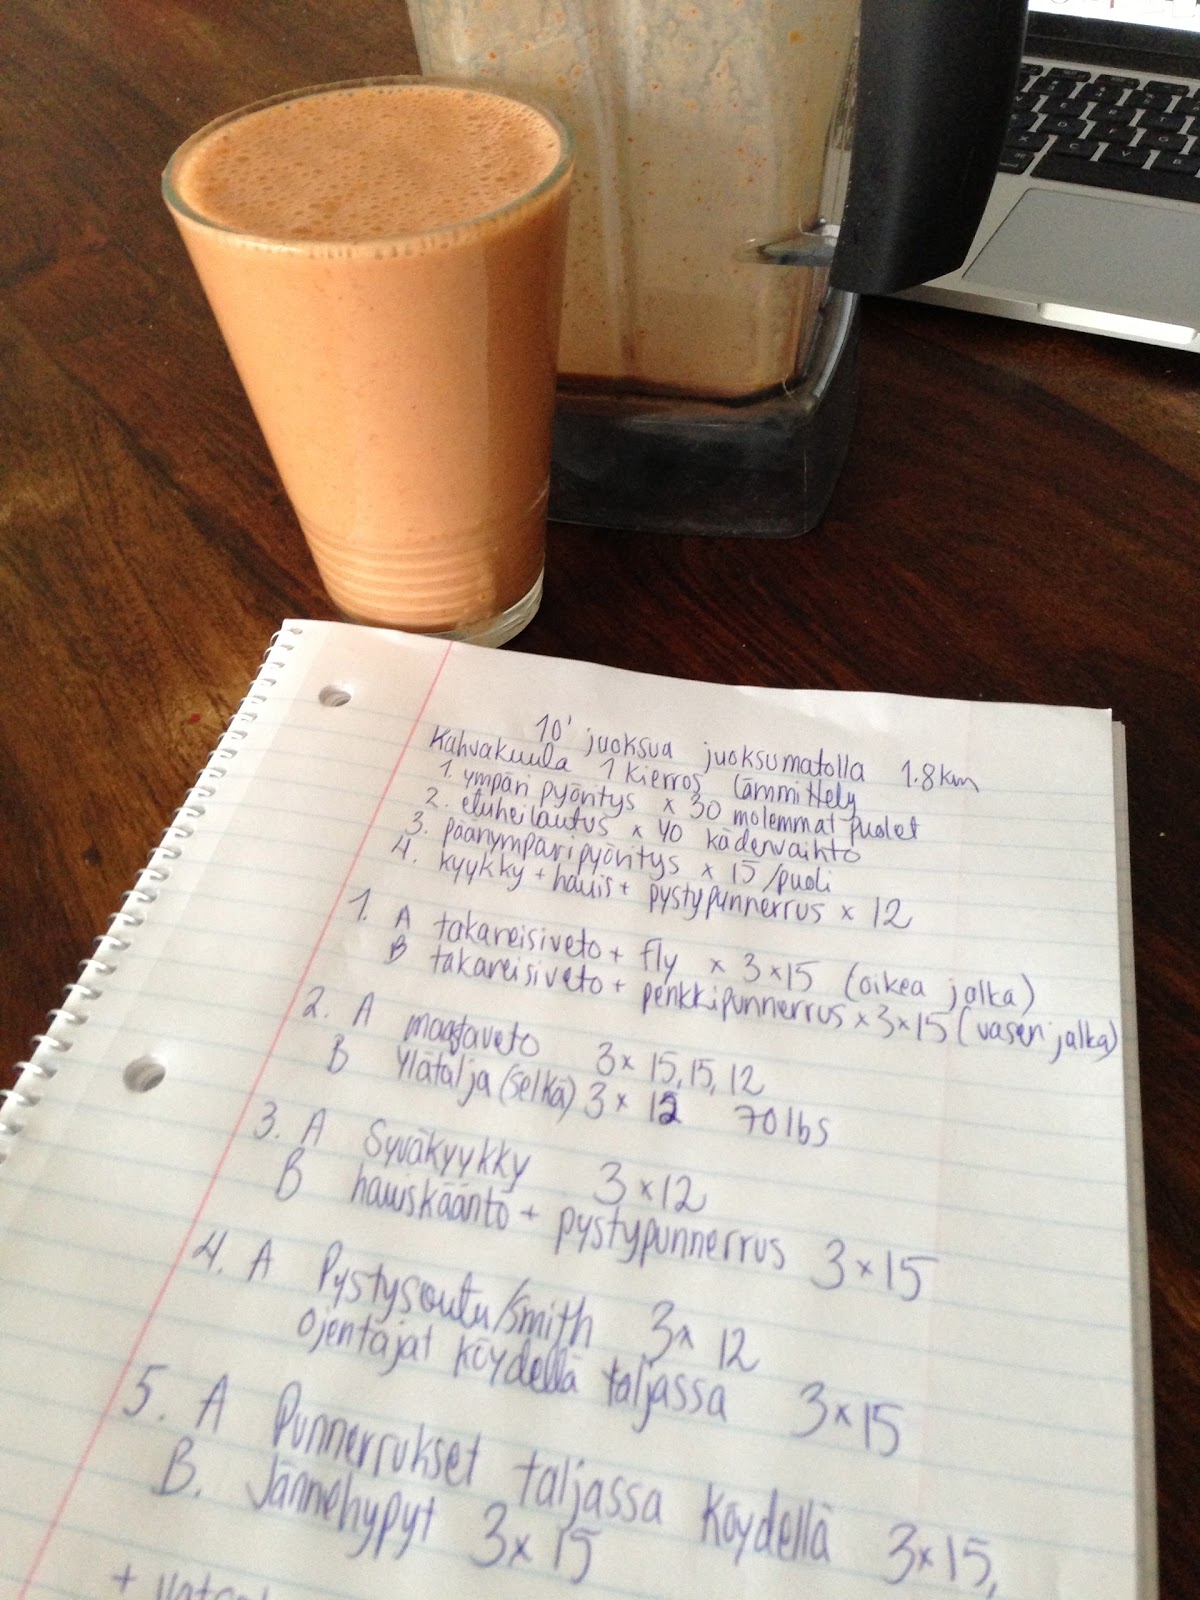 10' juoksua juoksumatolla 1.8km
Kahvakuula 1 kierros lämmittely
1. ympäri pyöritys x 30 molemmat puolet
2. etuheilautus x 40 kädenvaihto
3. päänympäripyöritys x 15/puoli
4. kyykky + hauis + pystypunnerrus x 12
1. A takareisiveto + fly x 3x15 (oikea jalka)
B takareisiveto + penkkipunnerrus x 3x15 (vasen jalka)
2. A maastaveto 3x 15, 15, 12
B Ylätalja (selkä) 3x 12 70lbs
3. A Syväkyykky 3x12
B hauiskääntö + pystypunnerrus 3x15
4. A Pystysoutu/smith 3x 12
ojentajat köydellä taljassa 3x15
5. A Punnerrukset taljassa köydellä 3x15,
B. Jännehypyt 3x15
+